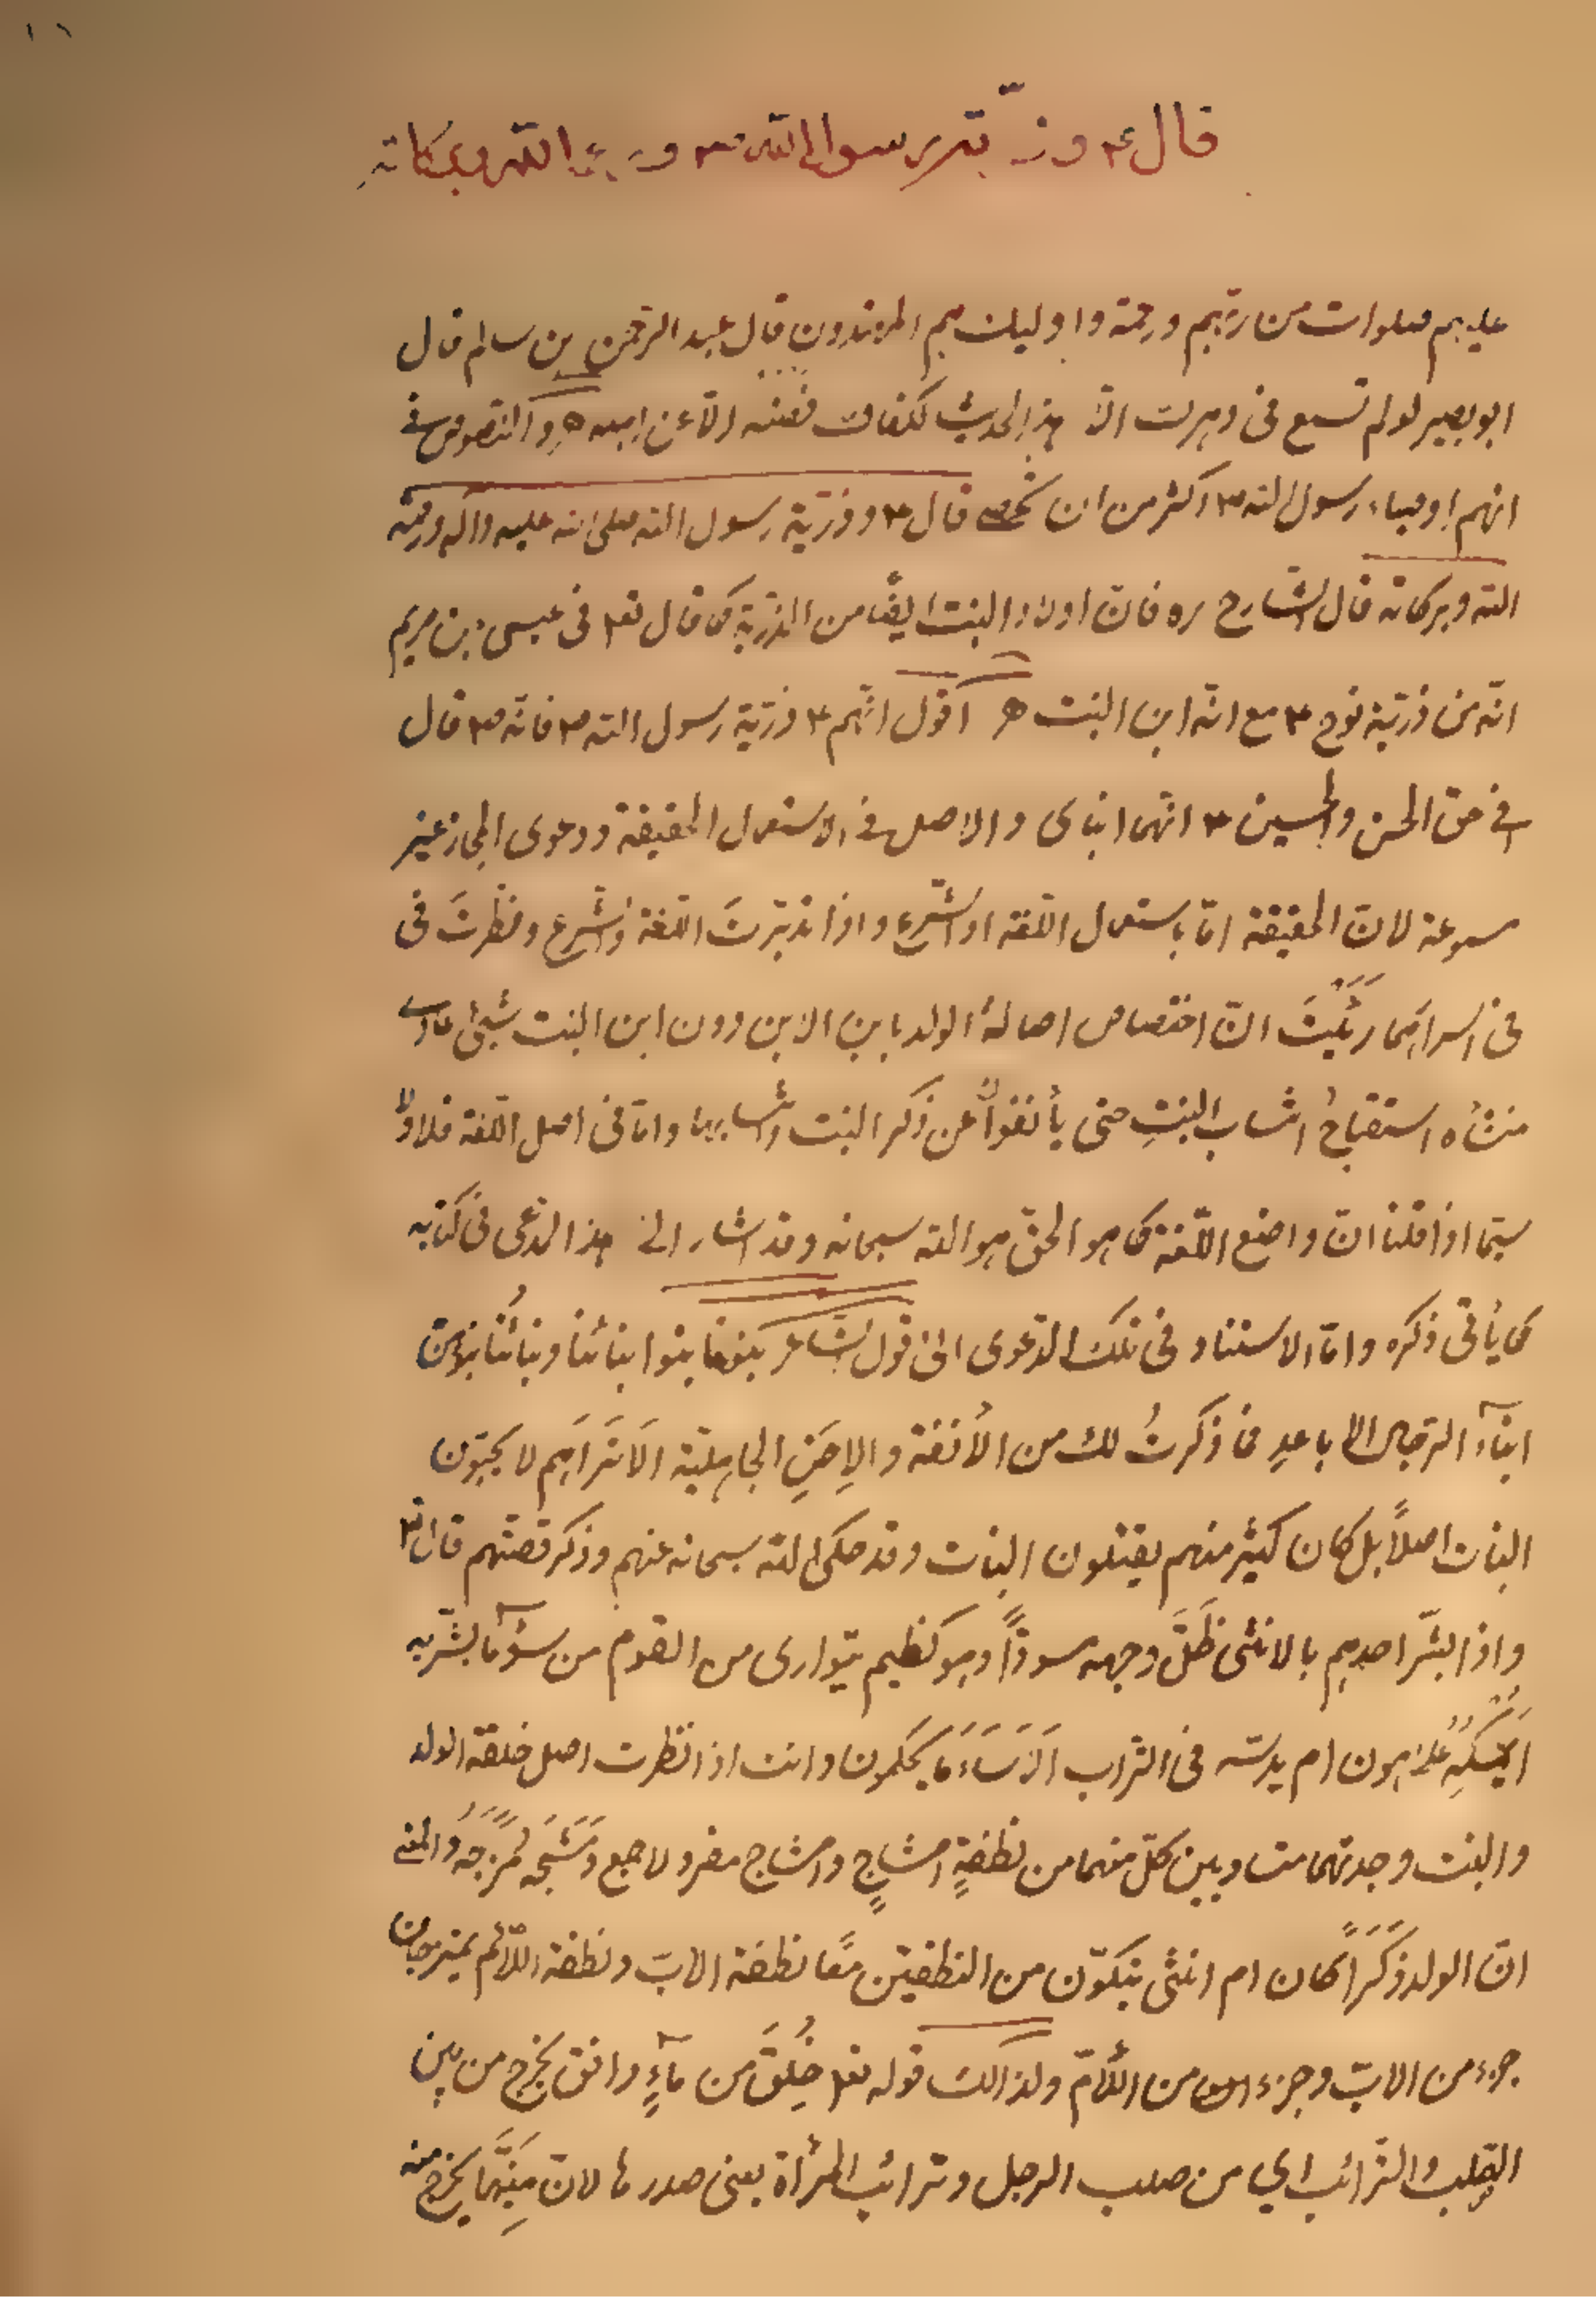 قال ع و ذرّية رسول الله ص و رحمة الله و بركاته
عليهم صلوات من ربّهم ورحمة واوليك هم المهتدون قال عبد الرحمن بن سالم قال
ابو بصير لو لم تسمع فى دهرك الّا هذا الحديث لكفاك فصنه الّا عن اهله ه والنصوص فى
انهم اوصياء رسول الله ص اكثر من ان تحصى قال ع وذرّية رسول الله صلى الله عليه واله ورحمة
الله وبركاته قال الشارح ره فانّ اولاد البنت ايضًا من الذرّية كما قال تعا فى عيسى بن مريم
انّه من ذرّية نوح ع مع انّه ابن البنت ه اقول انّهم ع ذرّية رسول الله ص فانّه ص قال
فى حق الحسن والحسين ع انّهما ابناى والاصل فى الاستعمال الحقيقة ودعوى المجاز غير
مسموعة لانّ الحقيقة امّا باستعمال اللّغة او الشّرع واذا تدبّرتَ اللّغة والشّرع ونظرتَ فى
فى اسرارهما رئيتَ انّ اختصاص اصالة الولد بابن الابن دون ابن البنت شيئ عادى
منشاه استقباحُ انتساب البنتِ حتى يأنفوا عن ذكر البنت وانتسابها وامّا فى اصل اللّغة فلا ولا
سيّما اذا قلنا انّ واضع اللّغة كما هو الحقّ هو الله سبحانه وقد اشار الى هذا المدّعى فى كتابه
كما يأتى ذكره وامّا الاستناد فى تلك الدّعوى الى قول الشّاعر بنونا بنوا ابنائنا وبناتُنا بنوهنّ
ابنآء الرّجال الاباعدِ فما ذكرتُ لك من الأنفة والاِحَنِ الجاهليّة الَا تَرَاهم لا يحبّون
البنات اصلًا بل كان كثير منهم يقتلون البنات وقد حكى الله سبحانه عنهم وذكر قصّتهم قال تع
واذا بشّر احدهم بالانثى ظَلَّ وجهه مسودًّا وهو كظيم يتوارى من القوم من سوٓء ما بشّر به
اَيُمسِكُهُ على هون ام يدسّه فى التّراب اَلَا سَآءَ ما يحكمون وانت اذا نظرت اصل خلقة الولد
والبنت وجدتهما متساويين كلّ منهما من نطفةٍ امشاجٍ وامشاج مفرد لا جمع ومَشَجَه مَزَجَهُ والمعنى
انّ الولد ذَكَرًا كان ام انثى يتكوّن من النطفتين معًا نطفة الابّ ونطفة الاُمّ يمتزجان
جزء من الابّ وجزء من الاُمّ ولذالك قوله تعا خُلِقَ من مآءٍ دافق يخرج من بين
الصّلب والتّرائب اي من صلب الرجل وترائب المرأة يعنى صدرها لانّ مَنِيّها يخرج منه